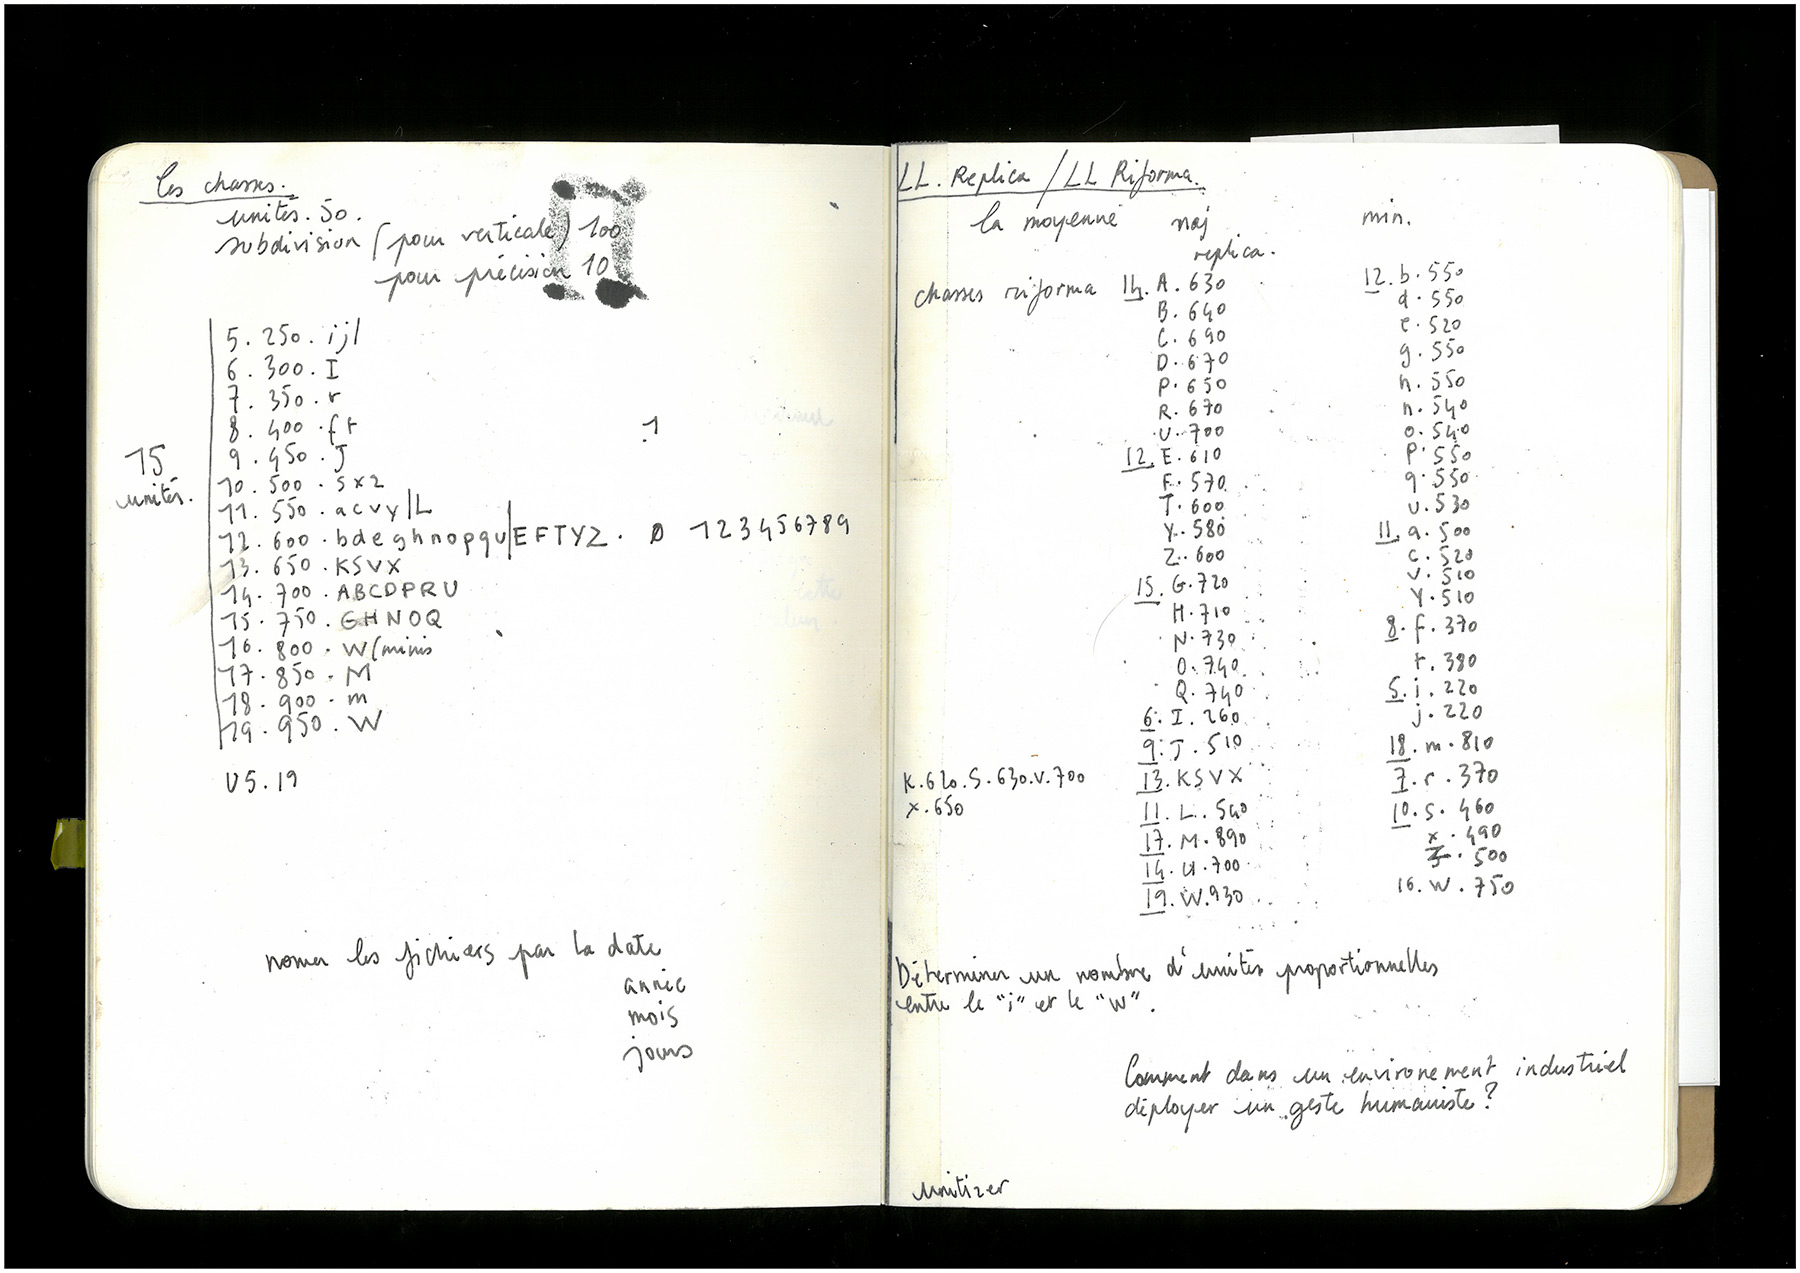 les chasses.
unités. 50.
subdivision (pour verticale) 100
pour précision 10
15
unités.
5. 250. ijl
6. 300. I
7. 350. r
8. 400. ft
9. 450. J
10. 500. sxz
11. 550. acvy/L
12. 600. bdeghnopqu|EFTYZ. 0 123456789
13. 650. KSVX
14. 700. ABCDPRU
15. 750. GHNOQ
16. 800. W(minis
17. 850. M
18. 900. m
19. 950. W
.1
U5.19
nomer les fichiers par la date
année
mois
jours
LL. Replica / LL Riforma.
la moyenne maj min.
replica.
chasses riforma
14. A. 630
B. 640
C. 690
D. 670
P. 650
R. 670
U. 700
12. E. 610
F. 570
T. 600
Y. 580
Z. 600
15. G. 720
H. 710
N. 730
O. 740
Q. 740
6. I. 260
9. J. 510
K. 620. S. 630. V. 700
x. 650
13. KSVX
11. L. 540
17. M. 890
14. U. 700
19. W. 930
12. b. 550
d. 550
e. 520
g. 550
h. 550
n. 540
o. 540
p. 550
q. 550
u. 530
11. a. 500
c. 520
v. 510
y. 510
8. f. 370
t. 380
5. i. 220
j. 220
18. m. 810
7. r. 370
10. s. 460
x. 490
z. 500
16. w. 750
Déterminer un nombre d'unités proportionnelles
entre le "i" et le "w".
Comment dans un environement industriel
déployer un geste humaniste?
unitizer